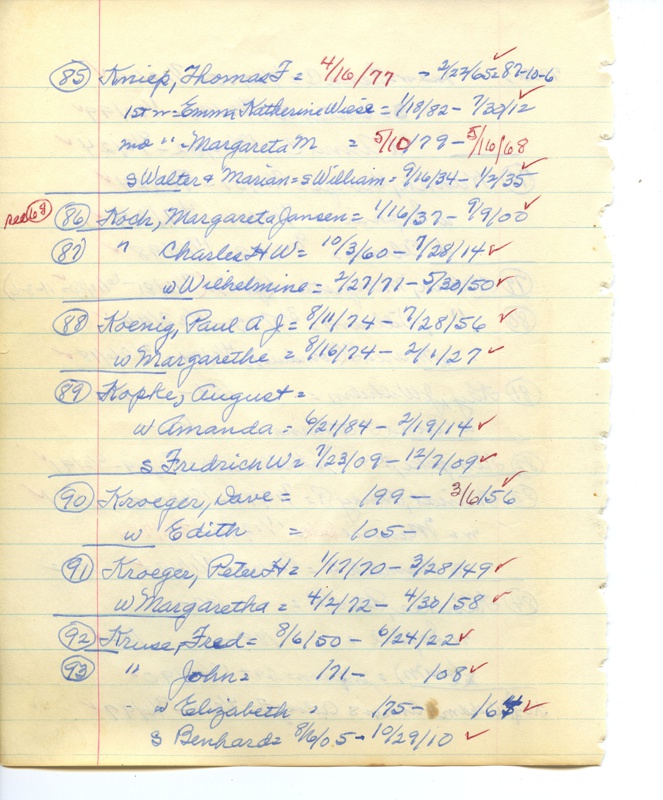 85 Kniep, Thomas F = 4/16/77 - 2/27/65=87-10-6
1st w-Emma Katherine Wiese = 1/18/82 - 7/30/12
2nd " - Margareta M = 5/10/79 - 5/16/68
s Walter & Marian = s William = 9/16/34 - 1/2/35
see 68 86 Koch, Margareta Jansen = 1/16/37 - 9/9/00
87 " Charles H W = 10/3/60 - 7/28/14
w Wilhelmine = 2/27/71 - 5/30/50
88 Koenig, Paul A J = 8/11/74 - 7/28/56
w Margarethe = 8/16/74 - 2/1/27
89 Kopke, August =
w Amanda = 6/21/84 - 2/19/14
s Fredrich W = 7/23/09 - 12/7/09
90 Kroeger, Dave = 199 - 3/6/56
w Edith = 105 -
91 Kroeger, Peter H = 1/17/70 - 3/28/49
w Margaretha = 4/2/72 - 4/30/58
92 Kruse, Fred = 8/6/50 - 6/24/22
93 " John = 171 - 108
w Elizabeth = 175 -
s Benhard = 8/6/05 - 10/29/10